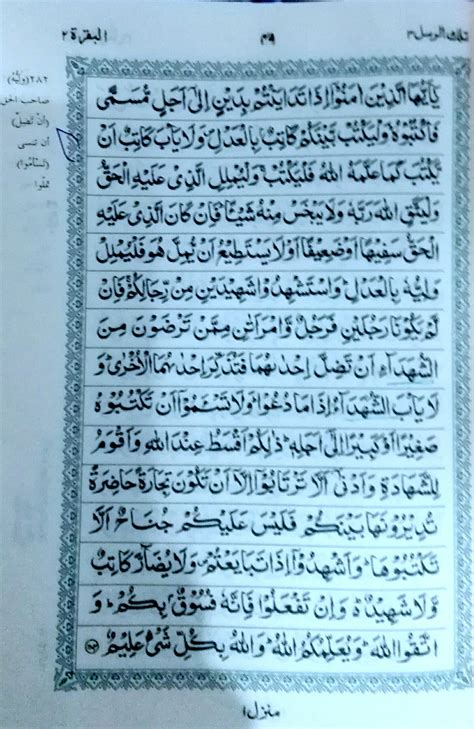 تلك الرسل ٣
٤٩
البقرة ٢
يٰۤاَيُّهَا الَّذِيْنَ اٰمَنُوْۤا اِذَا تَدَايَنْتُمْ بِدَيْنٍ اِلٰۤى اَجَلٍ مُّسَمًّى
فَاكْتُبُوْهُ ؕ وَلْيَكْتُبْ بَّيْنَكُمْ كَاتِبٌۢ بِالْعَدْلِ وَلَا يَاْبَ كَاتِبٌ اَنْ
يَّكْتُبَ كَمَا عَلَّمَهُ اللّٰهُ فَلْيَكْتُبْ ۚ وَلْيُمْلِلِ الَّذِيْ عَلَيْهِ الْحَقُّ
وَلْيَتَّقِ اللّٰهَ رَبَّهٗ وَلَا يَبْخَسْ مِنْهُ شَيْـًٔا ؕ فَاِنْ كَانَ الَّذِيْ عَلَيْهِ
الْحَقُّ سَفِيْهًا اَوْ ضَعِيْفًا اَوْ لَا يَسْتَطِيْعُ اَنْ يُّمِلَّ هُوَ فَلْيُمْلِلْ
وَلِيُّهٗ بِالْعَدْلِ ؕ وَاسْتَشْهِدُوْا شَهِيْدَيْنِ مِنْ رِّجَالِكُمْ ۚ فَاِنْ
لَّمْ يَكُوْنَا رَجُلَيْنِ فَرَجُلٌ وَّامْرَاَتٰنِ مِمَّنْ تَرْضَوْنَ مِنَ
الشُّهَدَآءِ اَنْ تَضِلَّ اِحْدٰىهُمَا فَتُذَكِّرَ اِحْدٰىهُمَا الْاُخْرٰى ؕ وَ
لَا يَاْبَ الشُّهَدَآءُ اِذَا مَا دُعُوْا ؕ وَلَا تَسْـَٔمُوْۤا اَنْ تَكْتُبُوْهُ
صَغِيْرًا اَوْ كَبِيْرًا اِلٰۤى اَجَلِهٖ ؕ ذٰلِكُمْ اَقْسَطُ عِنْدَ اللّٰهِ وَاَقْوَمُ
لِلشَّهَادَةِ وَاَدْنٰۤى اَلَّا تَرْتَابُوْۤا اِلَّاۤ اَنْ تَكُوْنَ تِجَارَةً حَاضِرَةً
تُدِيْرُوْنَهَا بَيْنَكُمْ فَلَيْسَ عَلَيْكُمْ جُنَاحٌ اَلَّا
تَكْتُبُوْهَا ؕ وَاَشْهِدُوْۤا اِذَا تَبَايَعْتُمْ ۪ وَلَا يُضَآرَّ كَاتِبٌ
وَّلَا شَهِيْدٌ ؕ۬ وَاِنْ تَفْعَلُوْا فَاِنَّهٗ فُسُوْقٌۢ بِكُمْ ؕ وَ
اتَّقُوا اللّٰهَ ؕ وَيُعَلِّمُكُمُ اللّٰهُ ؕ وَاللّٰهُ بِكُلِّ شَىْءٍ عَلِيْمٌ
٢٨٢ (وَلِيُّهُ)
صاحب الحق
(اَنْ تَضِلَّ)
ان تنسى
(تَسْئَمُوْا)
تملوا
منزل ١